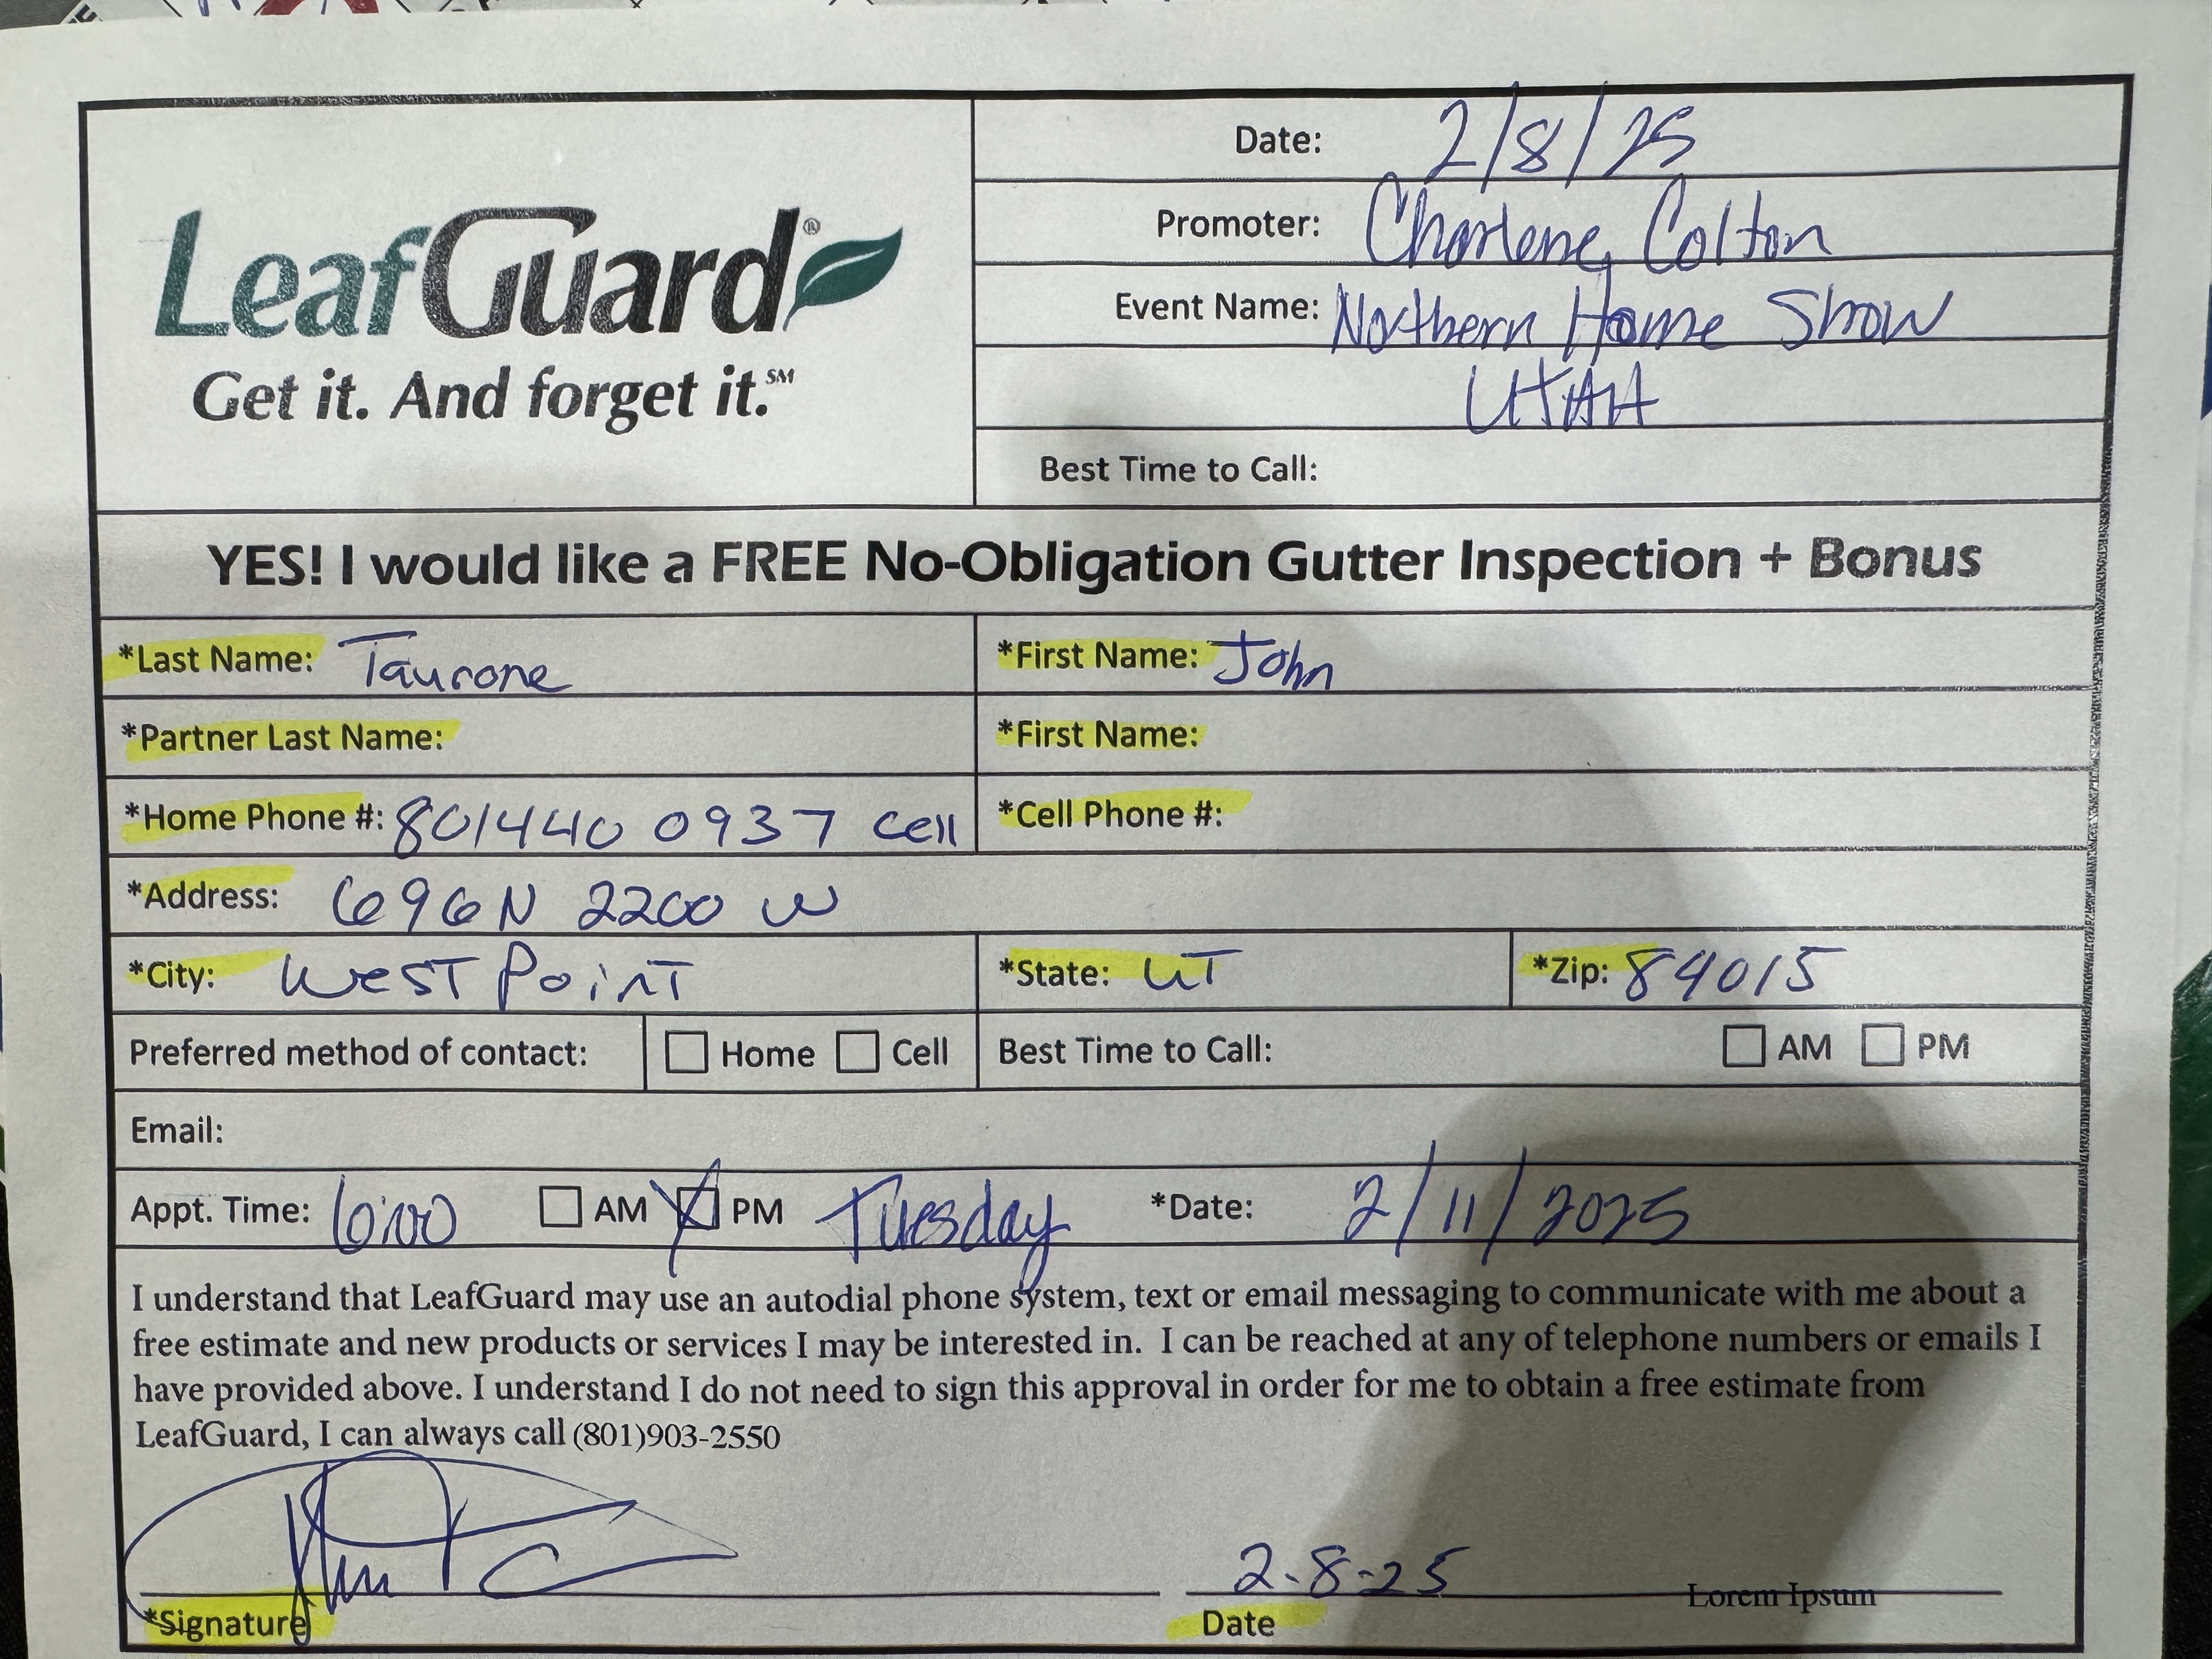 LeafGuard®
Get it. And forget it.℠
Date: 2/8/25
Promoter: Charlene Colton
Event Name: Northern Home Show
UTAH
Best Time to Call:
YES! I would like a FREE No-Obligation Gutter Inspection + Bonus
*Last Name: Taurone *First Name: John
*Partner Last Name: *First Name:
*Home Phone #: 801 440 0937 cell *Cell Phone #:
*Address: 696 N 2200 W
*City: West Point *State: UT *Zip: 84015
Preferred method of contact: Home Cell Best Time to Call: AM PM
Email:
Appt. Time: 6:00 AM PM Tuesday *Date: 2/11/2025
I understand that LeafGuard may use an autodial phone system, text or email messaging to communicate with me about a
free estimate and new products or services I may be interested in. I can be reached at any of telephone numbers or emails I
have provided above. I understand I do not need to sign this approval in order for me to obtain a free estimate from
LeafGuard, I can always call (801)903-2550
2.8.25 Lorem Ipsum
*Signature Date